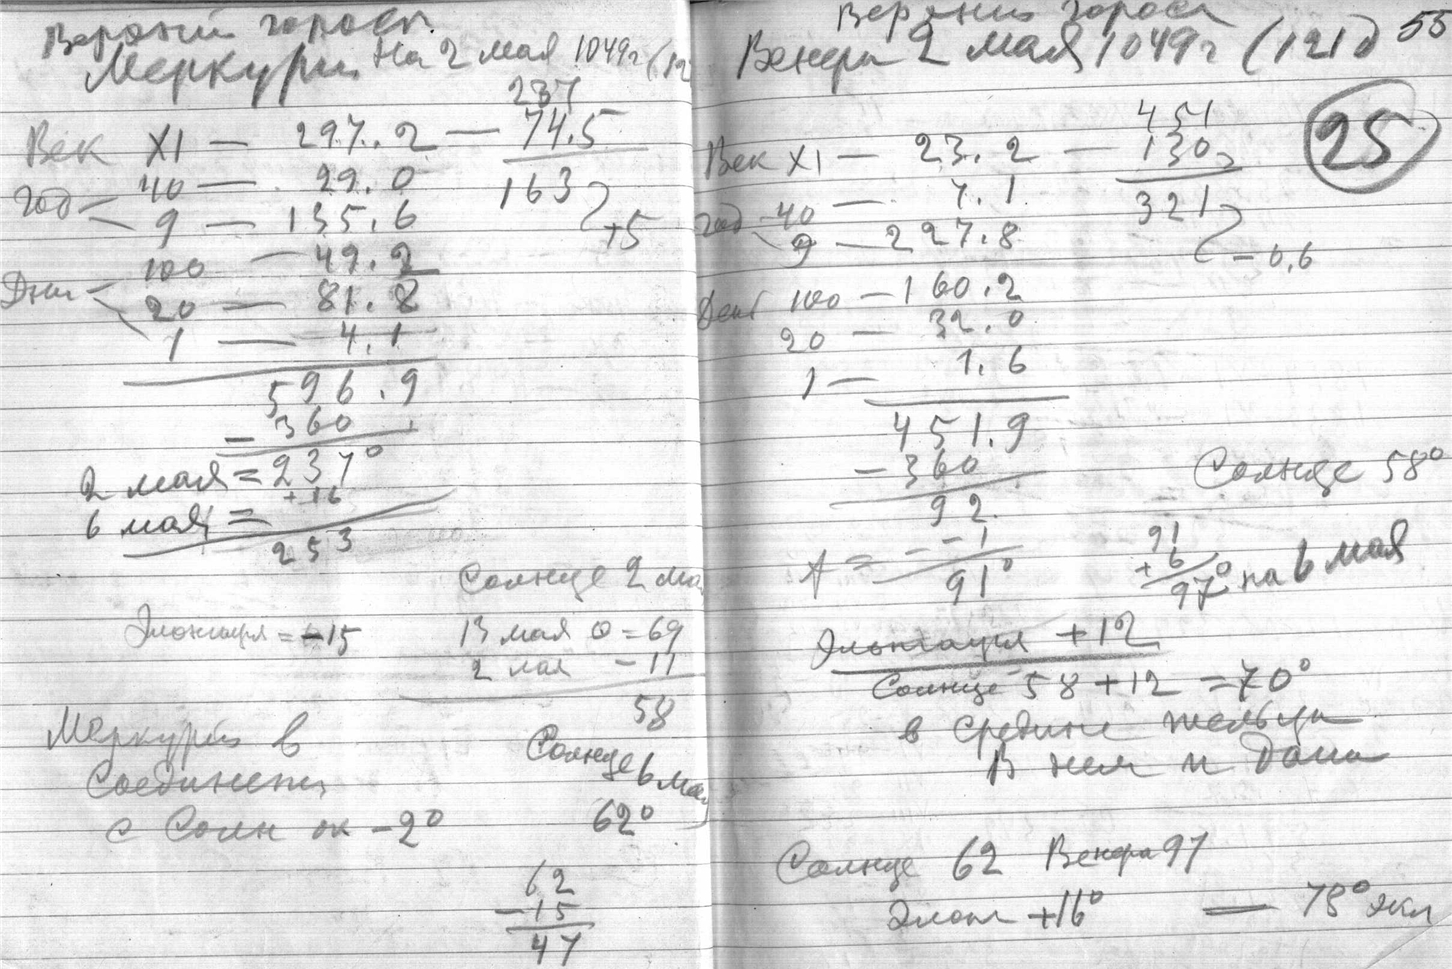 Верхний гороск.
Меркурий На 2 мая 1049г (12
237
Век XI — 297.2 — 74.5
год 40 — 29.0 163
9 — 135.6 +5
Дни 100 — 49.2
20 — 81.8
1 — 4.1
596.9
– 360
2 мая = 237°
+16
6 мая =
253
Солнце 2 ма
Элонгация = –15 13 мая 0 = 69
2 мая – 11
58
Меркурий в
соединении
с Солн ок –2°
Солнце 6 мая
62°
62
– 15
47
Верхний гороск
Венера 2 мая 1049г (121д 55
451
25
Век XI — 23.2 — 130
год 40 — 7.1 321
9 — 227.8 – 0,6
Дни 100 — 160.2
20 — 32.0
1 — 1.6
451.9
– 360 Солнце 58°
92
– – 1 91
91° + 6
97° на 6 мая
Эльнгация +12
Солнце 58 + 12 = 70°
в средине тельца
В нем и
Солнце 62 Венера 97
Элонг +16° — 78° экл